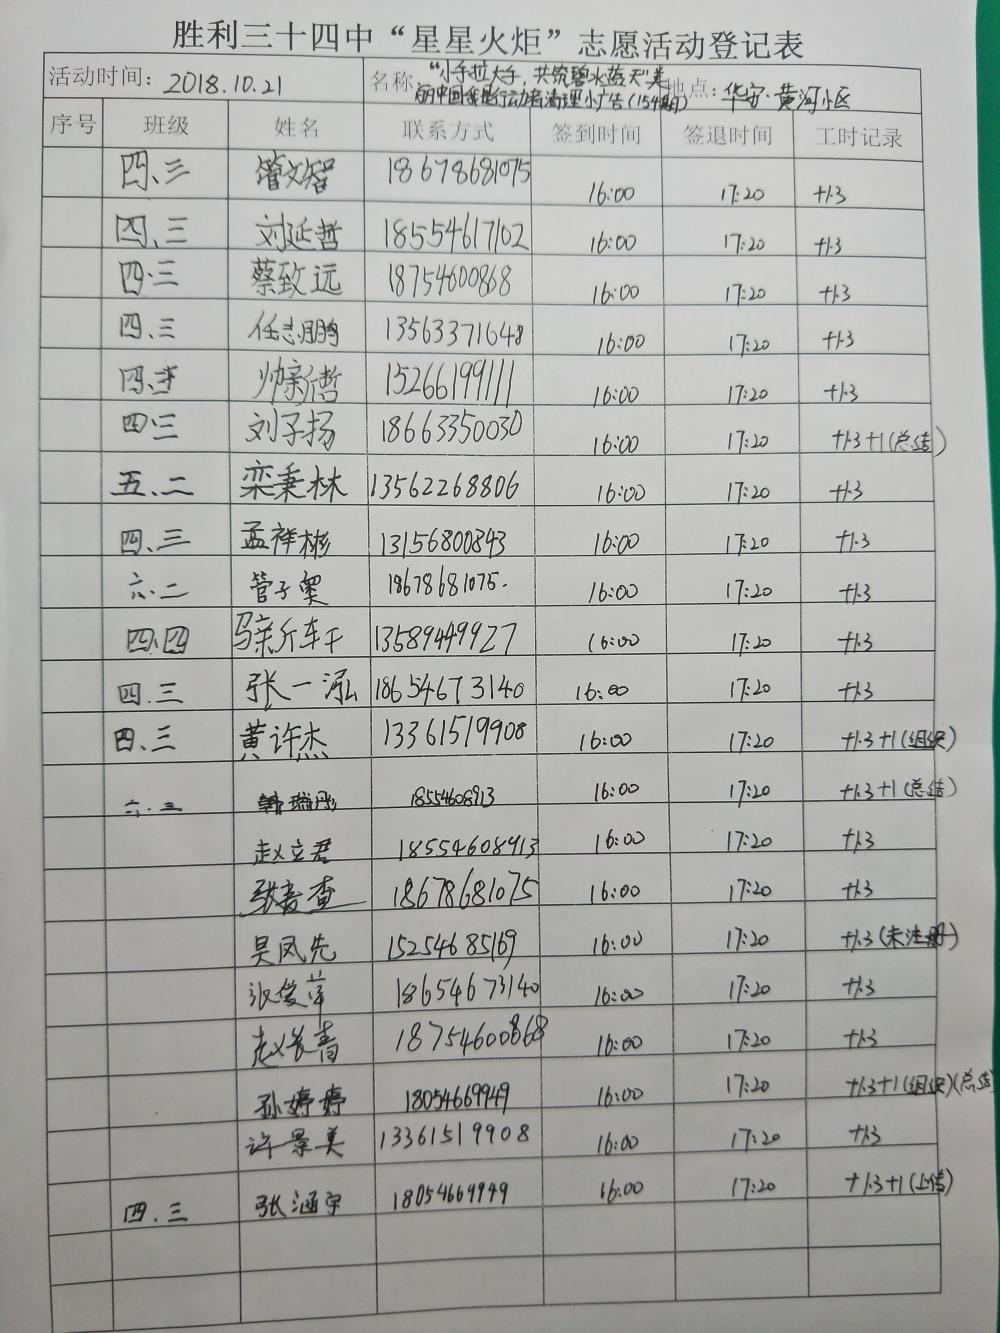 胜利三十四中“星星火炬”志愿活动登记表
活动时间：2018.10.21 名称：“小手拉大手，共筑碧水蓝天”美丽中国我是行动者清理小广告（154期） 地点：华宇·黄河小区
序号 班级 姓名 联系方式 签到时间 签退时间 工时记录
四、三 管文智 18678681075 16:00 17:20 +1.3
四、三 刘延哲 18554617102 16:00 17:20 +1.3
四·三 蔡致远 18754600868 16:00 17:20 +1.3
四.三 任志鹏 13563371648 16:00 17:20 +1.3
四.三 帅新哲 15266199111 16:00 17:20 +1.3
四·三 刘子扬 18663350030 16:00 17:20 +1.3+1(总结)
五.二 栾秉林 13562268806 16:00 17:20 +1.3
四、三 孟祥彬 13156800843 16:00 17:20 +1.3
六.二 管子奥 18678681075. 16:00 17:20 +1.3
四、四 13589449927 16:00 17:20 +1.3
四.三 张一泓 18654673140 16:00 17:20 +1.3
四、三 黄许杰 13361519908 16:00 17:20 +1.3+1(组织)
六.三 韩瑞彤 18554608913 16:00 17:20 +1.3+1(总结)
赵立君 18554608913 16:00 17:20 +1.3
18678681075 16:00 17:20 +1.3
吴凤先 15254685169 16:00 17:20 +1.3(未注册)
张俊萍 18654673140 16:00 17:20 +1.3
赵长青 18754600868 16:00 17:20 +1.3
孙婷婷 18054669949 16:00 17:20 +1.3+1(组织)(总结)
许景美 13361519908 16:00 17:20 +1.3
四.三 张涵宇 18054669949 16:00 17:20 +1.3+1(上传)